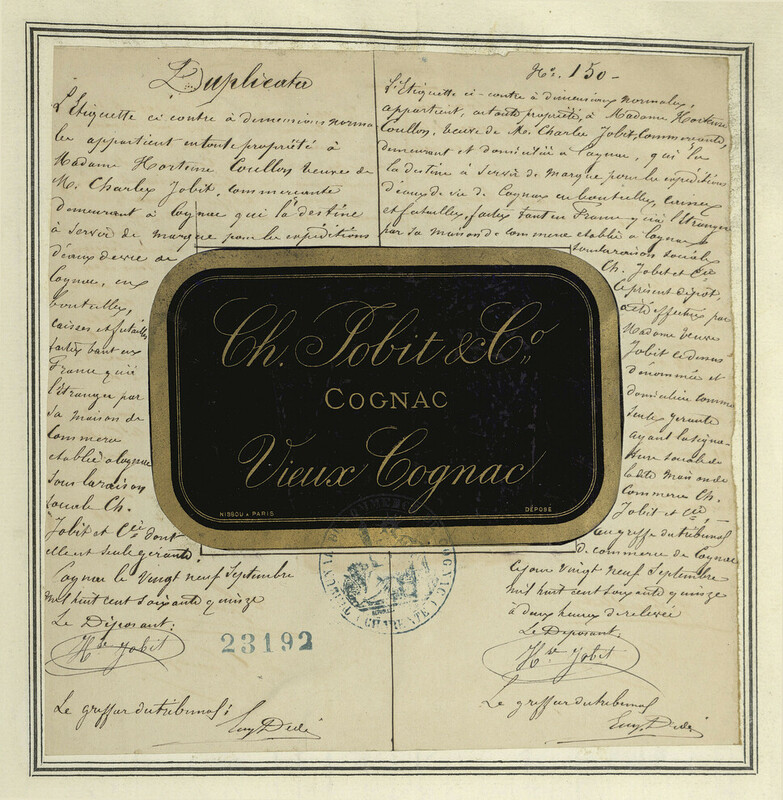 Duplicata
L'Etiquette ci contre à dimensions norma
les appartient en toute propriété à
Madame Hortense Coullon veuve de
M. Charles Jobit, commercante
demeurant à Cognac qui la destine
à servir de marque pour les expéditions
d'eaux de vie de
Cognac, en
bouteilles,
caisses et futailles
faites tant en
France qu'à
l'étranger par
sa maison de
Commerce
etablie à Cognac
sous la raison
sociale Ch.
Jobit et Cie dont
elle est seule gerante.
Cognac le vingt neuf Septembre
mil huit cent soixante quinze
Le Déposant:
Hse Jobit
23192
Le greffier du tribunal:
Eug. Didé
No. 150-
L'Etiquette ci-contre à dimensions normales,
appartient, en toute propriété, à Madame Hortense
Coullon, veuve de M. Charles Jobit, Commercante,
demeurant et domiciliée à Cognac, qui la
la destine à servir de marque pour les expéditions
d'eaux de vie de Cognac en bouteilles, caisses
et futailles, faites tant en France qu'à l'Etranger
par sa maison de commerce etablie à Cognac
sous la raison sociale
Ch. Jobit et Cie
Le présent dépot,
a été effectué par
Madame veuve
Jobit ci dessus
dénommée et
domiciliée comme
seule gerante
ayant la signa-
ture sociale de
la dite maison de
Commerce Ch.
Jobit et Cie,
au greffe du tribunal
de commerce de Cognac
Ce jour vingt neuf Septembre
mil huit cent soixante quinze
à deux heures de relevée
Le Déposant:
Hse Jobit
Le greffier du tribunal
Eug. Didé
Ch. Jobit & Co.
COGNAC
Vieux Cognac
NISSOU à PARIS
DÉPOSÉ
TRIBUNAL DE COMMERCE DE COGNAC
(CHARENTE)